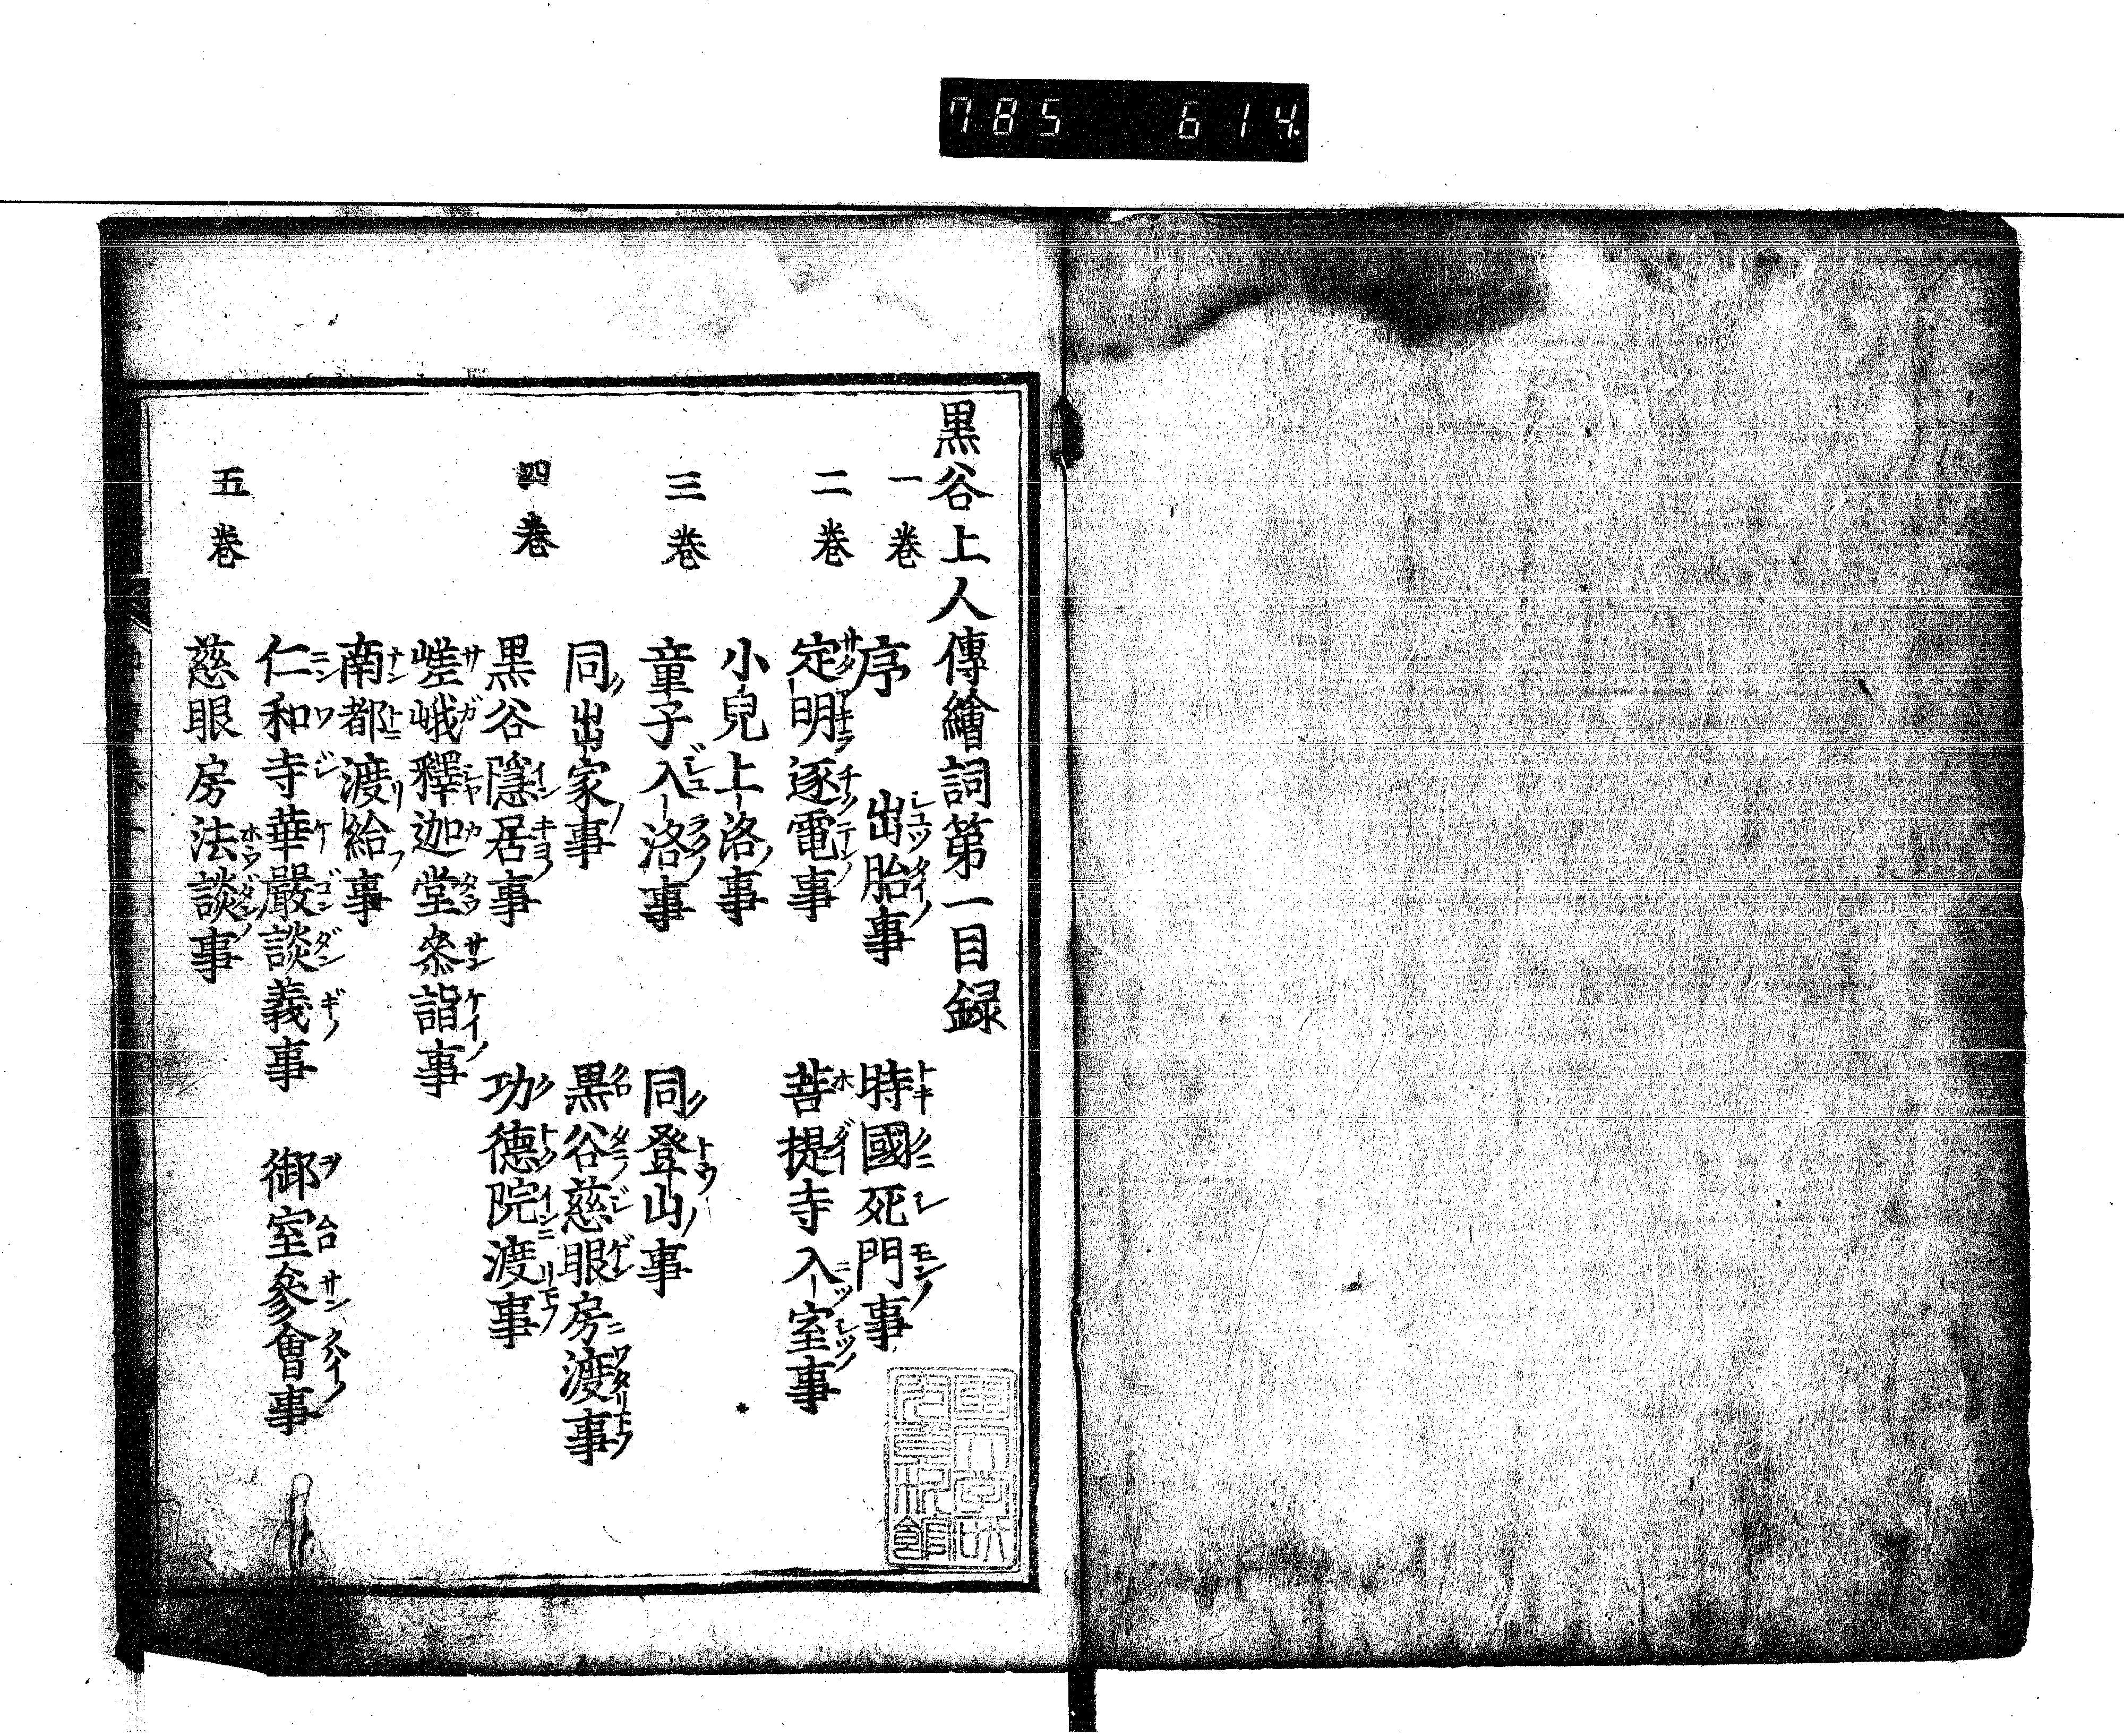 785 614
黒谷上人傳繪詞第一目録
一巻 序 出胎事 時國死門事
二巻 定明逐電事 菩提寺入室事
小兒上洛事
三巻 童子入洛事 同登山事
同出家事 黒谷慈眼房渡事
四巻 黒谷隱居事 功德院渡事
嵯峨釋迦堂叅詣事
南都渡給事
仁和寺華嚴談義事 御室參會事
五巻 慈眼房法談事